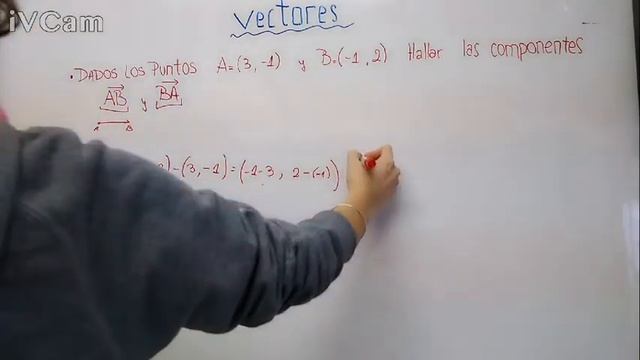 iVCam
Vectores
• DADOS LOS PUNTOS A=(3,-1) y B=(-1,2) Hallar las componentes
AB y BA
A B
)-(3,-1)=(-1-3, 2-(-1))